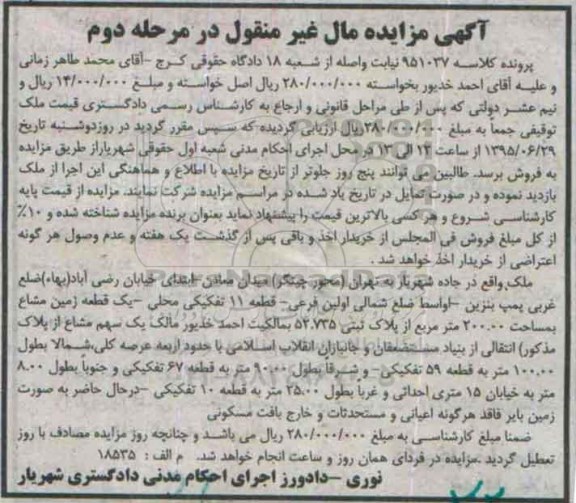 آگهی مزایده مال غیر منقول در مرحله دوم
پرونده کلاسه ۹۵۱۰۳۷ نیابت واصله از شعبه ۱۸ دادگاه حقوقی کرج -آقای محمد طاهر زمانی
و علیه آقای احمد خدیور بخواسته ۲۸۰/۰۰۰/۰۰۰ ریال اصل خواسته و مبلغ ۱۴/۰۰۰/۰۰۰ ریال و
نیم عشر دولتی که پس از طی مراحل قانونی و ارجاع به کارشناس رسمی دادگستری قیمت ملک
توقیفی جمعاً به مبلغ ۲۸۰/۰۰۰/۰۰۰ ریال ارزیابی گردیده که سپس مقرر گردید در روزدوشنبه تاریخ
۱۳۹۵/۰۶/۲۹ از ساعت ۱۲ الی ۱۳ در محل اجرای احکام مدنی شعبه اول حقوقی شهریاراز طریق مزایده
به فروش برسد. طالبین می توانند پنج روز جلوتر از تاریخ مزایده با اطلاع و هماهنگی این اجرا از ملک
بازدید نموده و در صورت تمایل در تاریخ یاد شده در مراسم مزایده شرکت نمایند. مزایده از قیمت پایه
کارشناسی شروع و هر کسی بالاترین قیمت را پیشنهاد نماید بعنوان برنده مزایده شناخته شده و ۱۰٪
از کل مبلغ فروش فی المجلس از خریدار اخذ و باقی پس از گذشت یک هفته و عدم وصول هر گونه
اعتراضی از خریدار اخذ خواهد شد .
ملک واقع در جاده شهریار به تهران (محور چیتگر) میدان معادن -ابتدای خیابان رضی آباد(بهاء)ضلع
غربی پمپ بنزین -اواسط ضلع شمالی اولین فرعی- قطعه ۱۱ تفکیکی محلی -یک قطعه زمین مشاع
بمساحت ۲۰۰.۰۰ متر مربع از پلاک ثبتی ۵۲.۷۳۵ بمالکیت احمد خدیور مالک یک سهم مشاع از پلاک
مذکور) انتقالی از بنیاد مستضعفان و جانبازان انقلاب اسلامی با حدود اربعه عرصه کلی،شمالا بطول
۱۰.۰۰ متر به قطعه ۵۹ تفکیکی- و شرقا بطول ۹.۰۰ متر به قطعه ۶۷ تفکیکی و جنوباً بطول ۸.۰۰
متر به خیابان ۱۵ متری احداثی و غرباً بطول ۲۵.۰۰ متر به قطعه ۱۰ تفکیکی -درحال حاضر به صورت
زمین بایر فاقد هرگونه اعیانی و مستحدثات و خارج بافت مسکونی
ضمنا مبلغ کارشناسی به مبلغ ۲۸۰/۰۰۰/۰۰۰ ریال می باشد و چنانچه روز مزایده مصادف با روز
تعطیل گردید .مزایده در فردای همان روز و ساعت انجام خواهد شد. م الف : ۱۸۵۳۵
نوری -دادورز اجرای احکام مدنی دادگستری شهریار